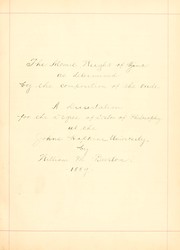 The Atomic Weight of Zinc
as determined
by the composition of the Oxide
A dissertation
for the Degree of Doctor of Philosophy
at the
Johns Hopkins University
by
William M. Burton
1889